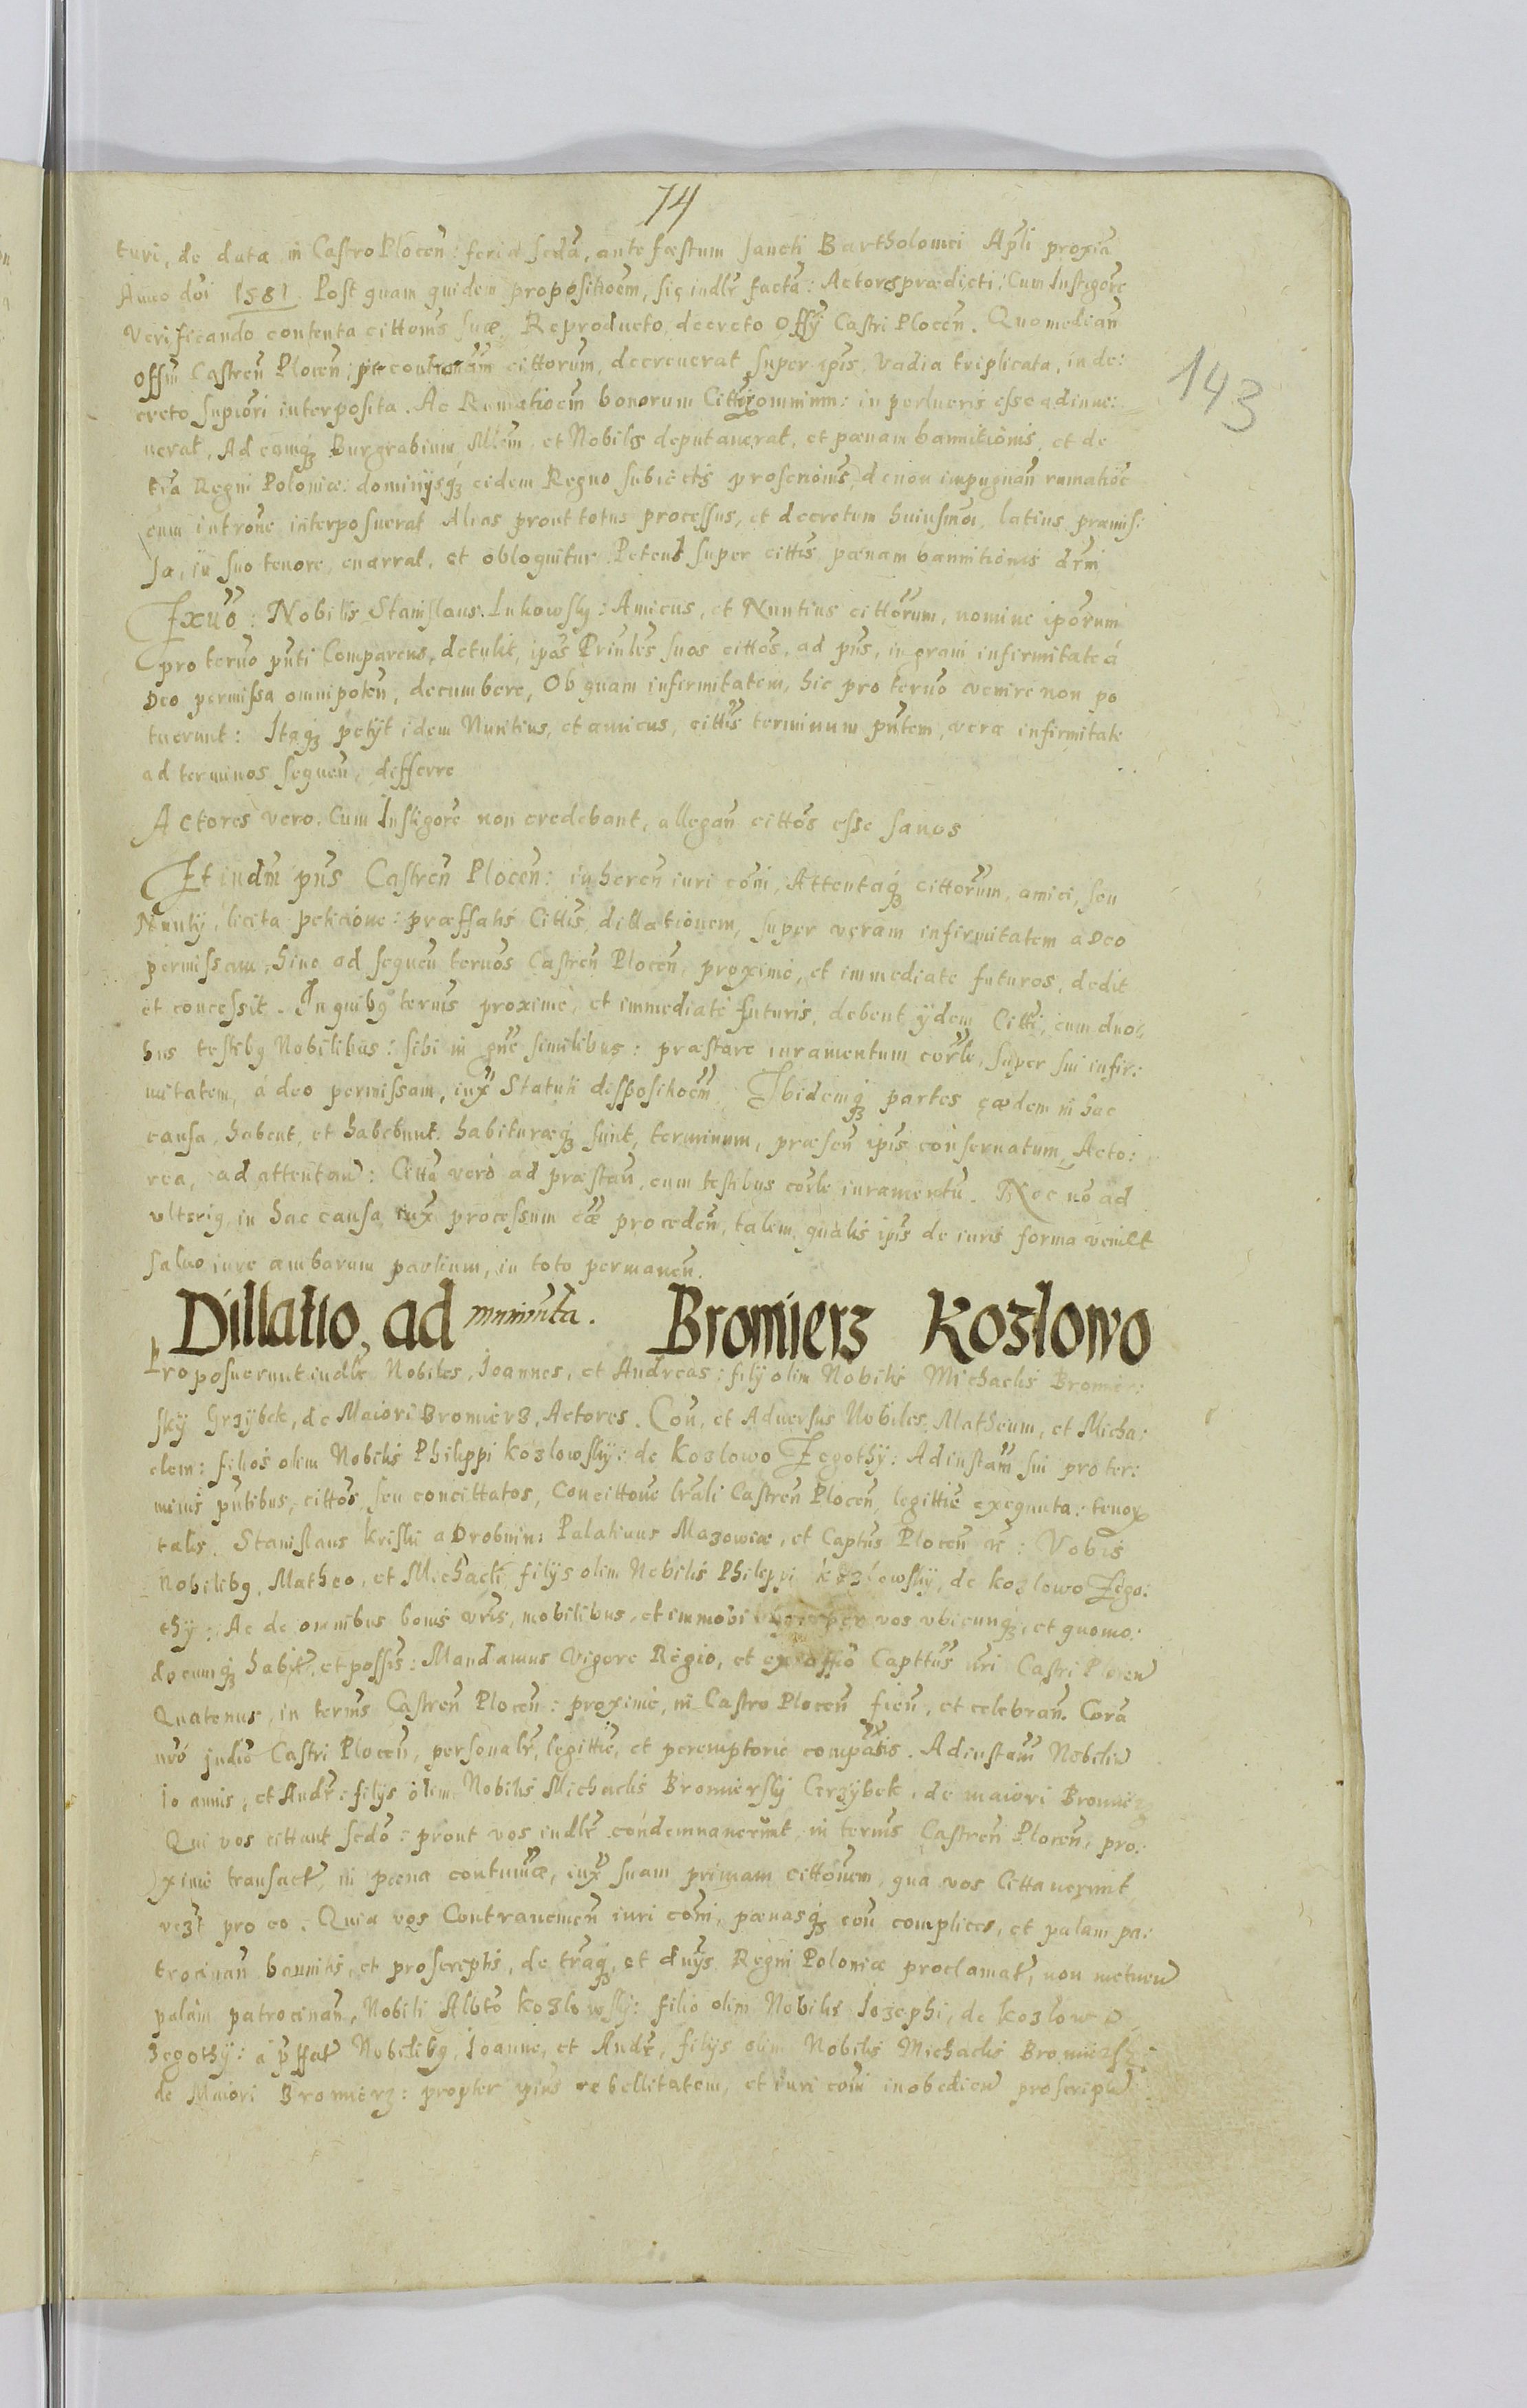 74
143
turi, de data in Castro Plocen: feria scda, ante fæstum sancti Bartholomei Apli proxia
Anno dni 1581. Post quam quidem propositioem, sic iudlr facta: Actores prædicti: Cum Instigore
Verificando contenta cittonis suæ, Reproducto decreto Offy Castri Plocen. Quo median
Offm Castren Plocen: cittorum, decreuerat super ipis, vadia triplicata, in de:
creto supiori interposita. Ac Rumatioem bonorum Cittor omnium: in perlucris esse adinue:
nerat, Ad eamq3 Burgrabium, Mlem, et Nobiles deputauerat, et pœnam bannitionis, et de
tra Regni Poloniæ: dominijsq3 eidem Regno subiectis proscrionis, de non impugnan rumatioe
cum introne interposuerat Alias prout totus processus, et decretum huiusmoi latius præmis:
sa, in suo tenore, enarrat, et obloquitur. Petens super cittis pœnam bannitionis drni
Ex uo: Nobilis Stanislaus Lukowsky: Amicus, et Nuntius cittorum, nomine iporum
pro terno pnti Comparens, detulit, ipos Prinles suos cittos, ad pns, in graui infirmitate á
Deo permissa omnipoten, decumbere, Ob quam infirmitatem, hic pro terno venire non po
tuerunt: Itaq3 petyt idem Nuntius, et amicus, cittis terminum pntem, vera infirmitate
ad terminos sequen, differre
Actores vero. Cum Instigore non credebant, allegan cittos esse sanos
Et iudm pns Castren Plocen: inheren iuri coni, Attentaq3 cittorum, amici, seu
Nuntij, licita peticione: præffatis Cittis dillationem, super veram infirmitatem a Deo
permissam, hinc ad sequen ternos Castren Plocen, proxime, et immediate futuros, dedit
et concessit. In quibq ternis proximè, et immediatè futuris, debent ydem Citti, cum duo:
bus testibq Nobilibus: sibi in gne similibus: præstare iuramentum corle, super sui infir:
mitatem, á deo permissam, iux Statuti dispositioem. Ibidemq3 partes eædem in hac
causa, habent, et habebunt, habituræq3 sunt, terminum, præsen ipis conseruatum, Acto:
rea, ad attentan: Citta verò ad præstan, cum testibus corle iuramentu. Nec no ad
vlteriq, in hac causa, iux processum eæ proceden, talem, qualis ipis de iuris forma veniet
saluo iure ambarum partium, in toto permanen.
Dillatio, ad munimta. Bromierz Kozlowo
Proposuerunt iudlr Nobiles, Joannes, et Andreas: filij olim Nobilis Michaelis Bromier:
sky Grzybek, de Maiori Bromierz, Actores. Con, et Aduersus Nobiles, Matheum, et Micha:
elem: filios olim Nobilis Philippi Kozlowsky: de Kozlowo Zegothy: Ad instam sui pro ter:
minis pntibus, cittos, seu concittatos, Concittone lrali Castren Plocen, legittie exequuta: tenor
talis. Stanislaus Kriski a Drobnin: Palatinus Mazowiæ, et Captus Plocen zc: Vobis
Nobilibq, Matheo, et Michaeli, filijs olim Nobilis Philippi Kozlowskij, de Kozlowo Zego:
thy: Ac de omnibus bonis vris, mobilibus, et immobilibus per vos vbicunq3, et quomo:
docunq3 habit, et possis: Mandamus Vigore Regio, et ex officio Capttus nri Castri Plocen
Quatenus, in ternis Castren Plocen: proximè, in Castro Plocen fien, et celebran. Cora
nro judio Castri Plocen, personalr, legittie, et peremptorie compatis. Ad instam Nobiliu
Joannis, et Andr: filijs olim Nobilis Michaelis Bromiersky Grzybek, de maiori Bromierz
Qui vos cittant scdo: prout vos iudlr condemnauerunt, in ternis Castren Plocen, pro:
ximè transact, in pœna contumæ, iux suam primam cittonem, qua vos Cittauerunt
vezt pro eo. Quia vos Contrauenien iuri coni, pœnasq3 con complices, et palam pa:
trocinan bannitis, et proscriptis, de traq3, et dnys Regni Poloniæ proclamat, non metuen
palàm patrocinan, Nobili Albto Kozlowsky: filio olim Nobilis Jozephi, de Kozlowo
Zegothy: á pffat Nobilibq, Joanne, et Andr, filijs olim Nobilis Michaelis Bromiersky:
de Maiori Bromierz: propter ipius rebellitatem, et iuri coni inobedien proscript